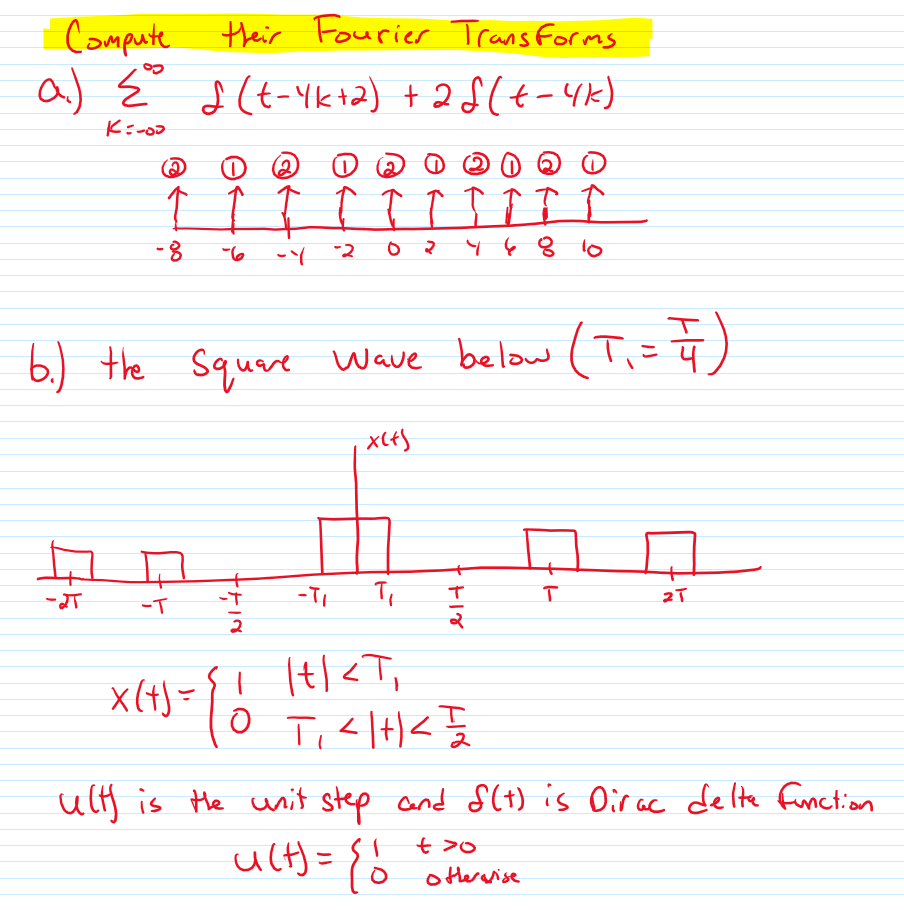 Compute their Fourier Transforms
a.) ∑ δ(t-4k+2) + 2δ(t-4k)
∞
K=-∞
② ① ② ① ② ① ② ① ② ①
-8 -6 -4 -2 0 2 4 6 8 10
b.) the Square Wave below (T₁ = T/4)
x(t)
-2T -T -T/2 -T₁ T₁ T/2 T 2T
x(t) = { 1 |t| < T₁
0 T₁ < |t| < T/2
u(t) is the unit step and δ(t) is Dirac delta function
u(t) = { 1 t >0
0 otherwise